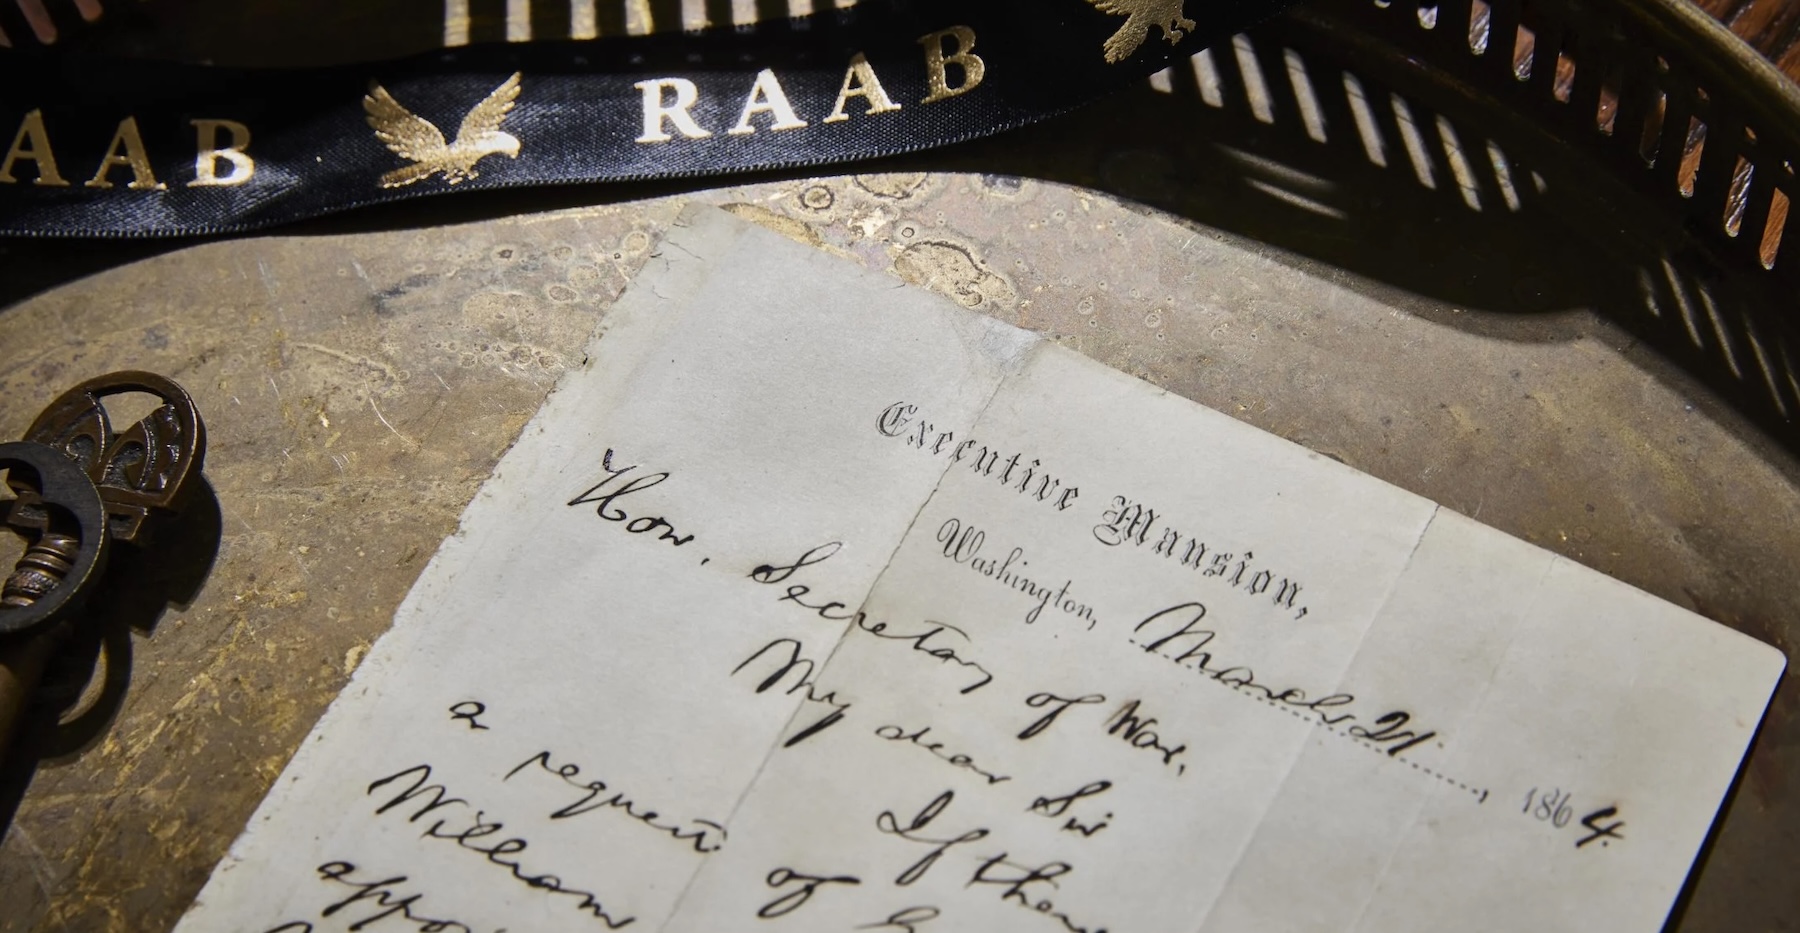 AAB RAAB
Executive Mansion,
Washington, March 21, 1864.
Hon. Secretary of War,
My dear Sir
If there
a request of
William
appoi